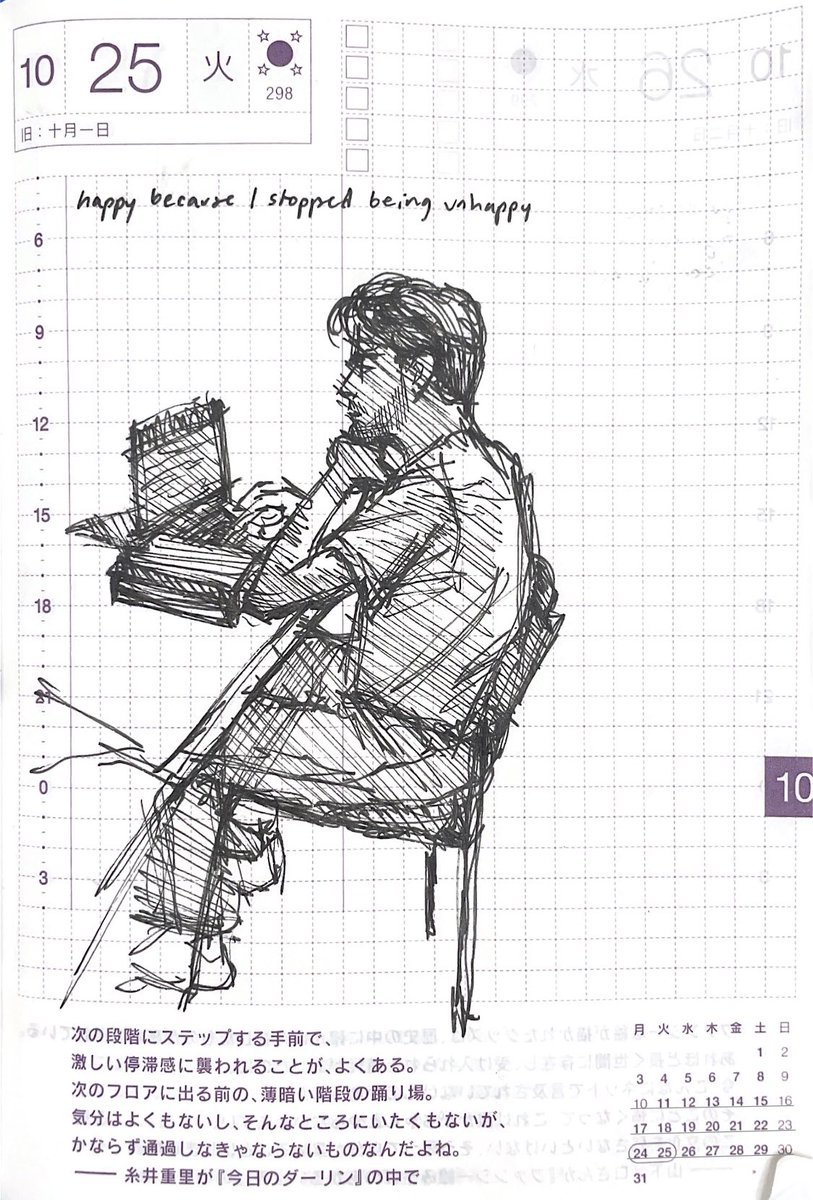 10 25 火 298
旧：十月一日
happy because I stopped being unhappy
6
9
12
15
18
21
0
3
10
次の段階にステップする手前で、
激しい停滞感に襲われることが、よくある。
次のフロアに出る前の、薄暗い階段の踊り場。
気分はよくもないし、そんなところにいたくもないが、
かならず通過しなきゃならないものなんだよね。
—— 糸井重里が『今日のダーリン』の中で
月 火 水 木 金 土 日
1 2
3 4 5 6 7 8 9
10 11 12 13 14 15 16
17 18 19 20 21 22 23
24 25 26 27 28 29 30
31